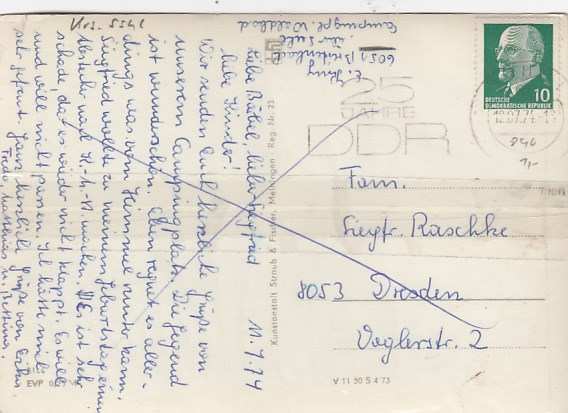 Nrs. 5542
E. Jhny
6051 Breitenbach
über Suhl
Campingpl. Waldbad
11.7.74
Liebe Bärbel, lieber Siegfried
liebe Kinder!
Wir senden Euch herzliche Grüße von
unserem Campingplatz. Die Gegend
ist wunderschön. Eben regnet es aller-
dings was vom Himmel runter kann.
Siegfried wollte zu meinem Geburtstag einen
Besuch mit H.-h.-N. machen. Es ist sehr
schade, daß es wieder nicht klappt. Es will
und will nicht passen. Ich hätte mich
sehr gefreut. Ganz herzliche Grüße von Erika
Fredo, Matthias u. Bettina.
EVP 0,25 M
Kunstanstalt Straub & Fischer, Meiningen · Reg.-Nr. 23
25
JAHRE
DDR
DEUTSCHE
DEMOKRATISCHE REPUBLIK
10
846
1,-
Fam.
Siegfr. Raschke
8053 Dresden
Voglerstr. 2
V 11 50 S 4 73